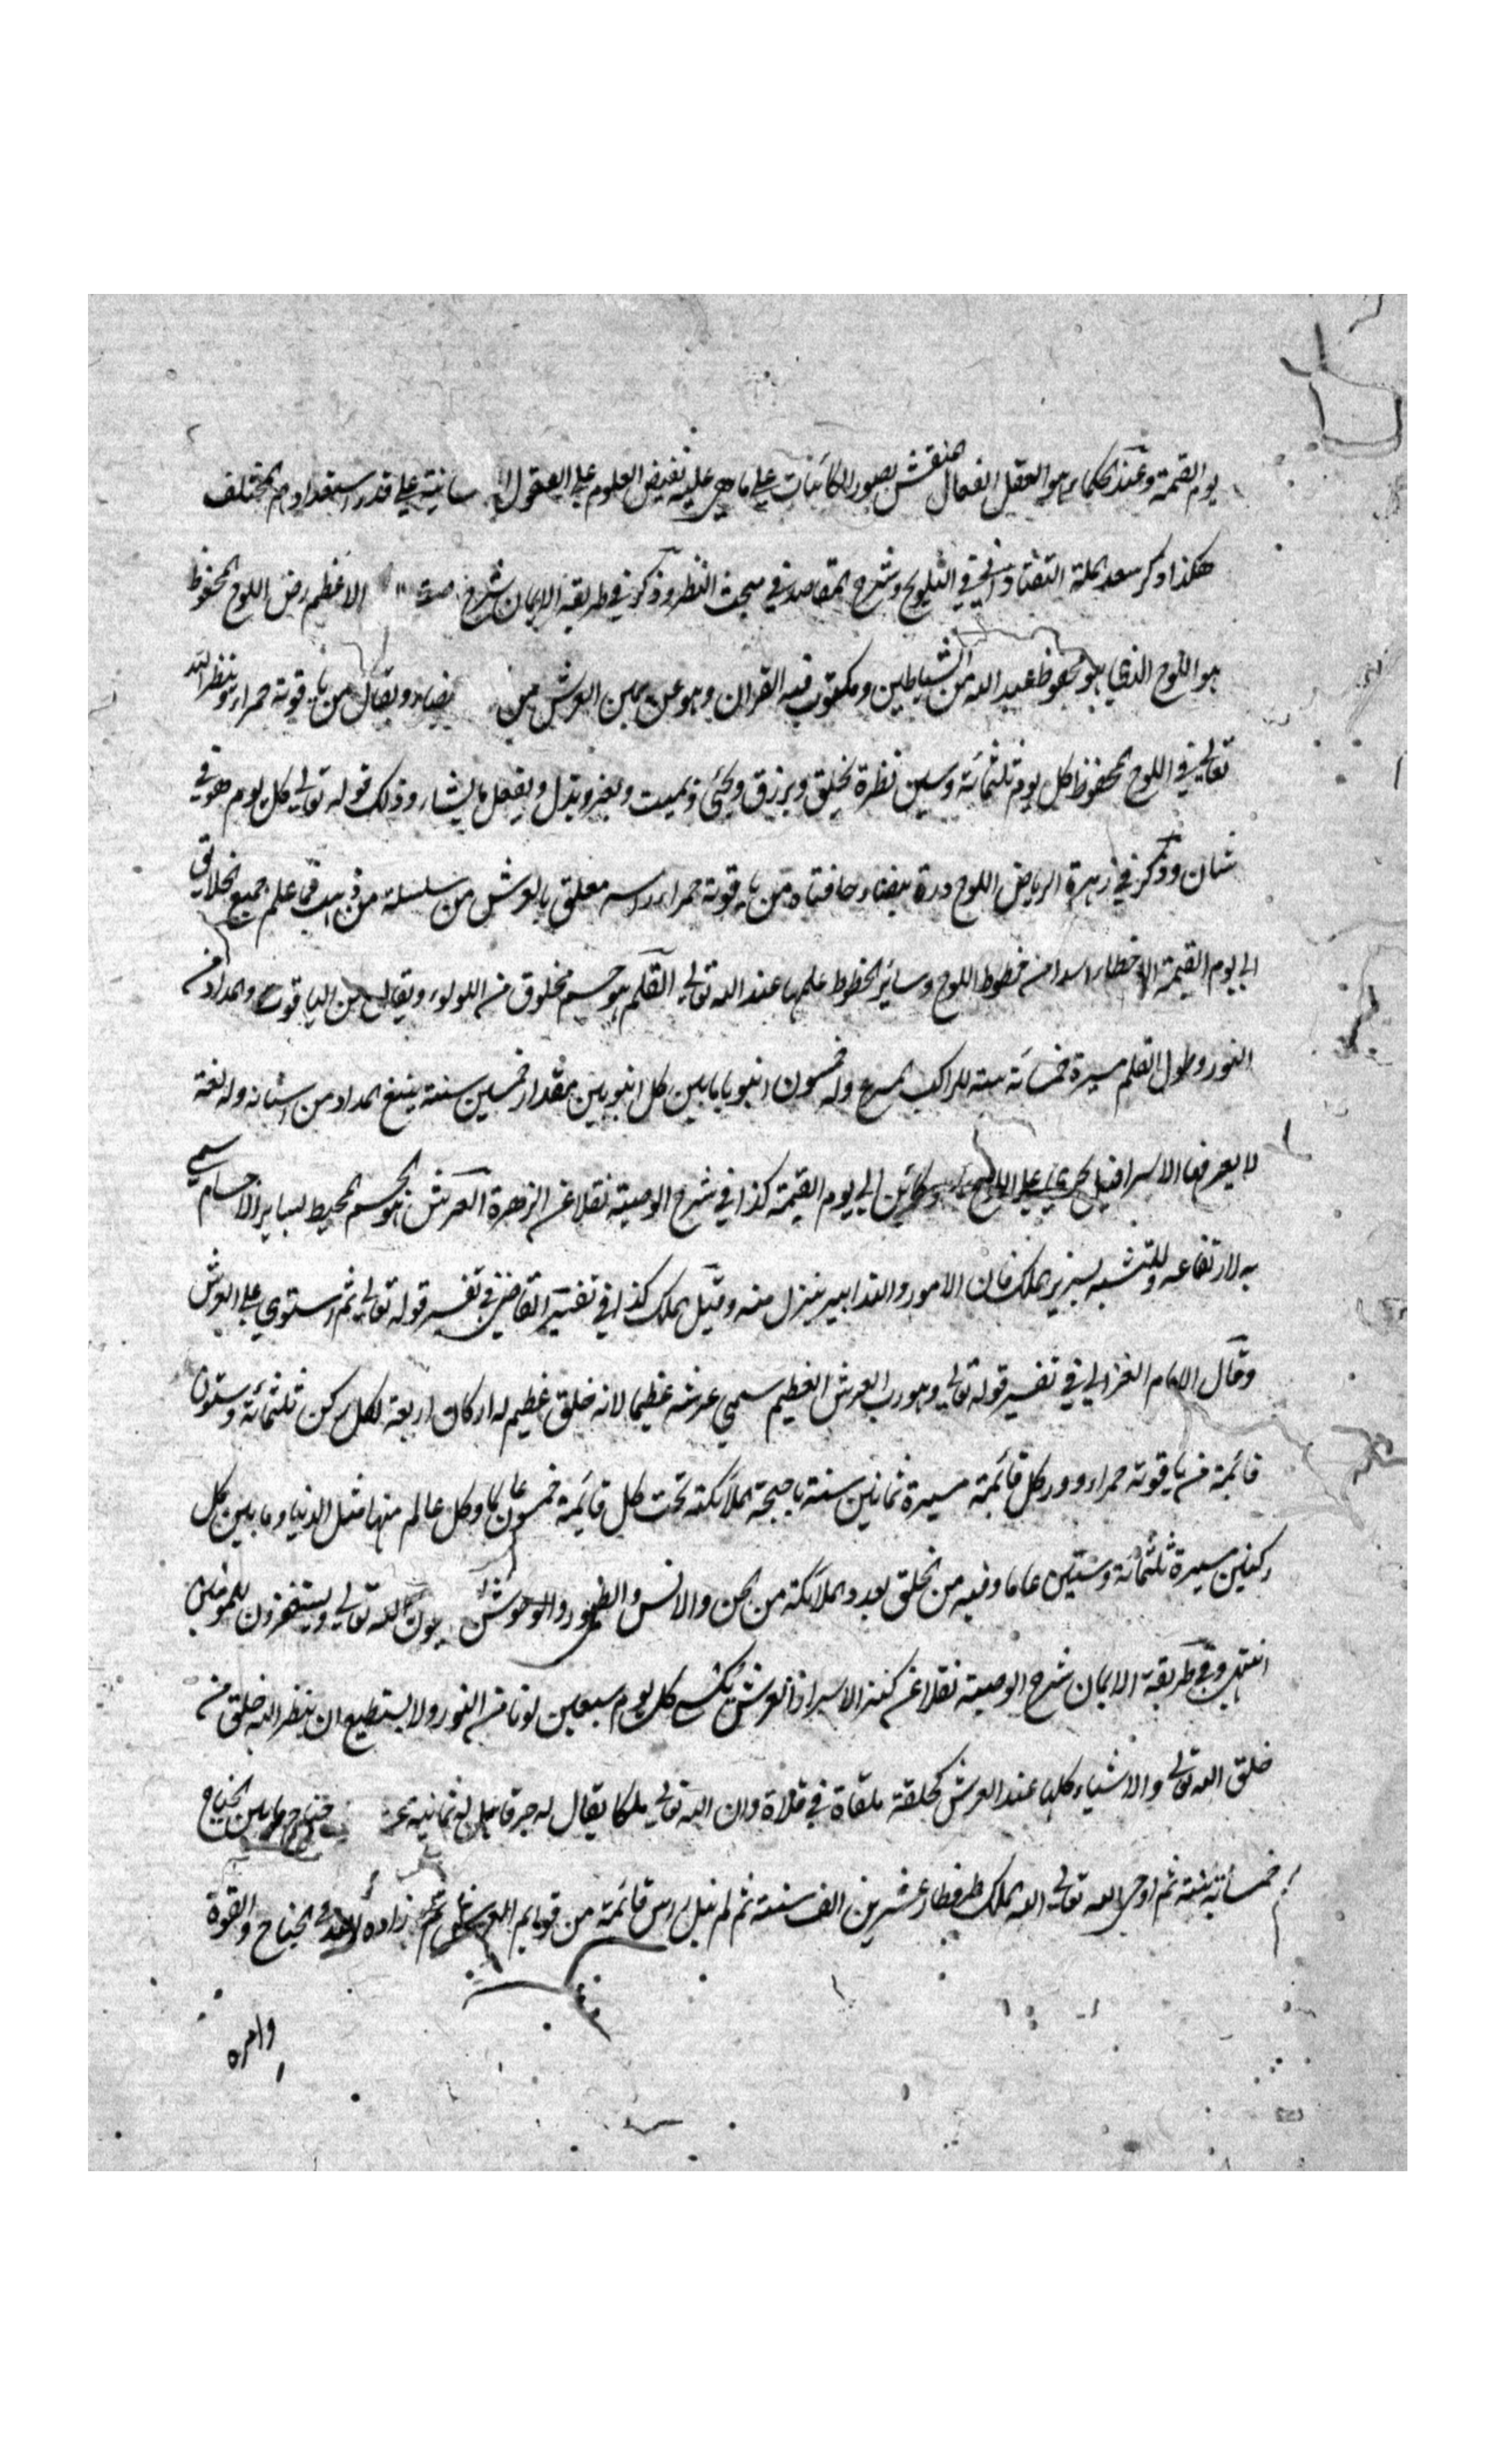 يوم القيمة وعند الحكماء هو العقل الفعال المنقش بصور الكائنات على ما هي عليه تفيض العلوم على العقول سانية على قدر استعدادهم المختلف
هكذا ذكر سعد الملة التفتازاني في التلويح وشرح المقاصد في مبحث النظر وذكر في طريقة الايمان شرح الاعظم رض اللوح المحفوظ
هو اللوح الذي هو محفوظ عبد الله من الشياطين ومكتوب فيه القران وهو عن يمين العرش من بيضاء ويقال من ياقوتة حمراء وينظر الله
تعالى في اللوح المحفوظ كل يوم ثلثمائة وستين نظرة يخلق ويرزق ويحيى ويميت ويعز ويذل ويفعل ما يشاء وذلك قوله تعالى كل يوم هو في
شان وذكر في زهرة الرياض اللوح درة بيضاء حافتاه من ياقوتة حمراء راسه معلق بالعرش من سلسلة من ذهب علم جميع الخلايق
الى يوم القيمة من خطوط اللوح وسائر الخطوط علمها عند الله تعالى القلم هو جسم مخلوق من اللولوء ويقال من الياقوت والمداد من
النور وطول القلم مسيرة خمسمائة سنة للراكب المسرع وله خمسون انبوبا ما بين كل انبوبين مقدار خمسين سنة ينبع المداد من اسنانه وله لغة
لا يعرفها الا اسرافيل يجرى على اللوح الى يوم القيمة كذا في شرح الوصية نقلا عن الزهرة العرش هو الجسم المحيط لساير الاجسام سمي
به لارتفاعه وللتشبه بسرير الملك فان الامور والتدابير ينزل منه وقيل الملك كذا في تفسير القاضي في تفسير قوله تعالى ثم استوى على العرش
وقال الامام الغزالي في تفسير قوله تعالى وهو رب العرش العظيم سمي عرشه عظيما لانه خلق عظيم له اركان اربعة لكل ركن ثلثمائة وستون
قائمة من ياقوتة حمراء ودور كل قائمة مسيرة ثمانين سنة باجنحة الملائكة تحت كل قائمة خمسون عالما وكل عالم منها مثل الدنيا وما بين كل
ركنين مسيرة ثلثمائة وستين عاما وفيه من الخلق بعدد الملائكة من الجن والانس والطيور والوحوش الله تعالى ويستغفرون للمومنين
انتهى وفي طريقة الايمان شرح الوصية نقلا عن كنز الاسرار العرش يكسى كل يوم سبعين لونا من النور ولا يستطيع ان ينظر اليه خلق من
خلق الله تعالى والاشياء كلها عند العرش كحلقة ملقاة في فلاة وان الله تعالى ملكا يقال له حرقائيل له ثمانية عشر جناح ما بين الجناح
خمسمائة سنة ثم اوحى الله تعالى اليه الملك طر فطار عشرين الف سنة ثم لم ينل راس قائمة من قوايم العرش ثم زاده الله في الجناح والقوة
وامره